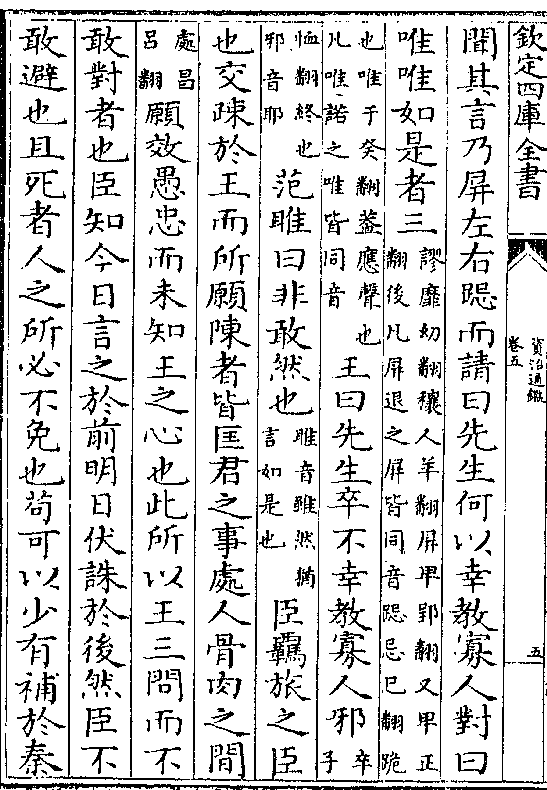 欽定四庫全書
資治通鑑
卷五
五
聞其言乃屏左右跽而請曰先生何以幸教寡人對曰
唯唯如是者三
謬靡幼翻穰人羊翻屏卑郢翻又卑正
翻後凡屏退之屏皆同音跽忌巳翻跪
也唯于癸翻葢應聲也
凡唯諾之唯皆同音
王曰先生卒不幸教寡人邪
卒
子
恤翻終也
邪音耶
范睢曰非敢然也
睢音雖然猶
言如是也
臣羈旅之臣
也交疎於王而所願陳者皆匡君之事處人骨肉之間
處昌
吕翻
願效愚忠而未知王之心也此所以王三問而不
敢對者也臣知今日言之於前明日伏誅於後然臣不
敢避也且死者人之所必不免也苟可以少有補於秦